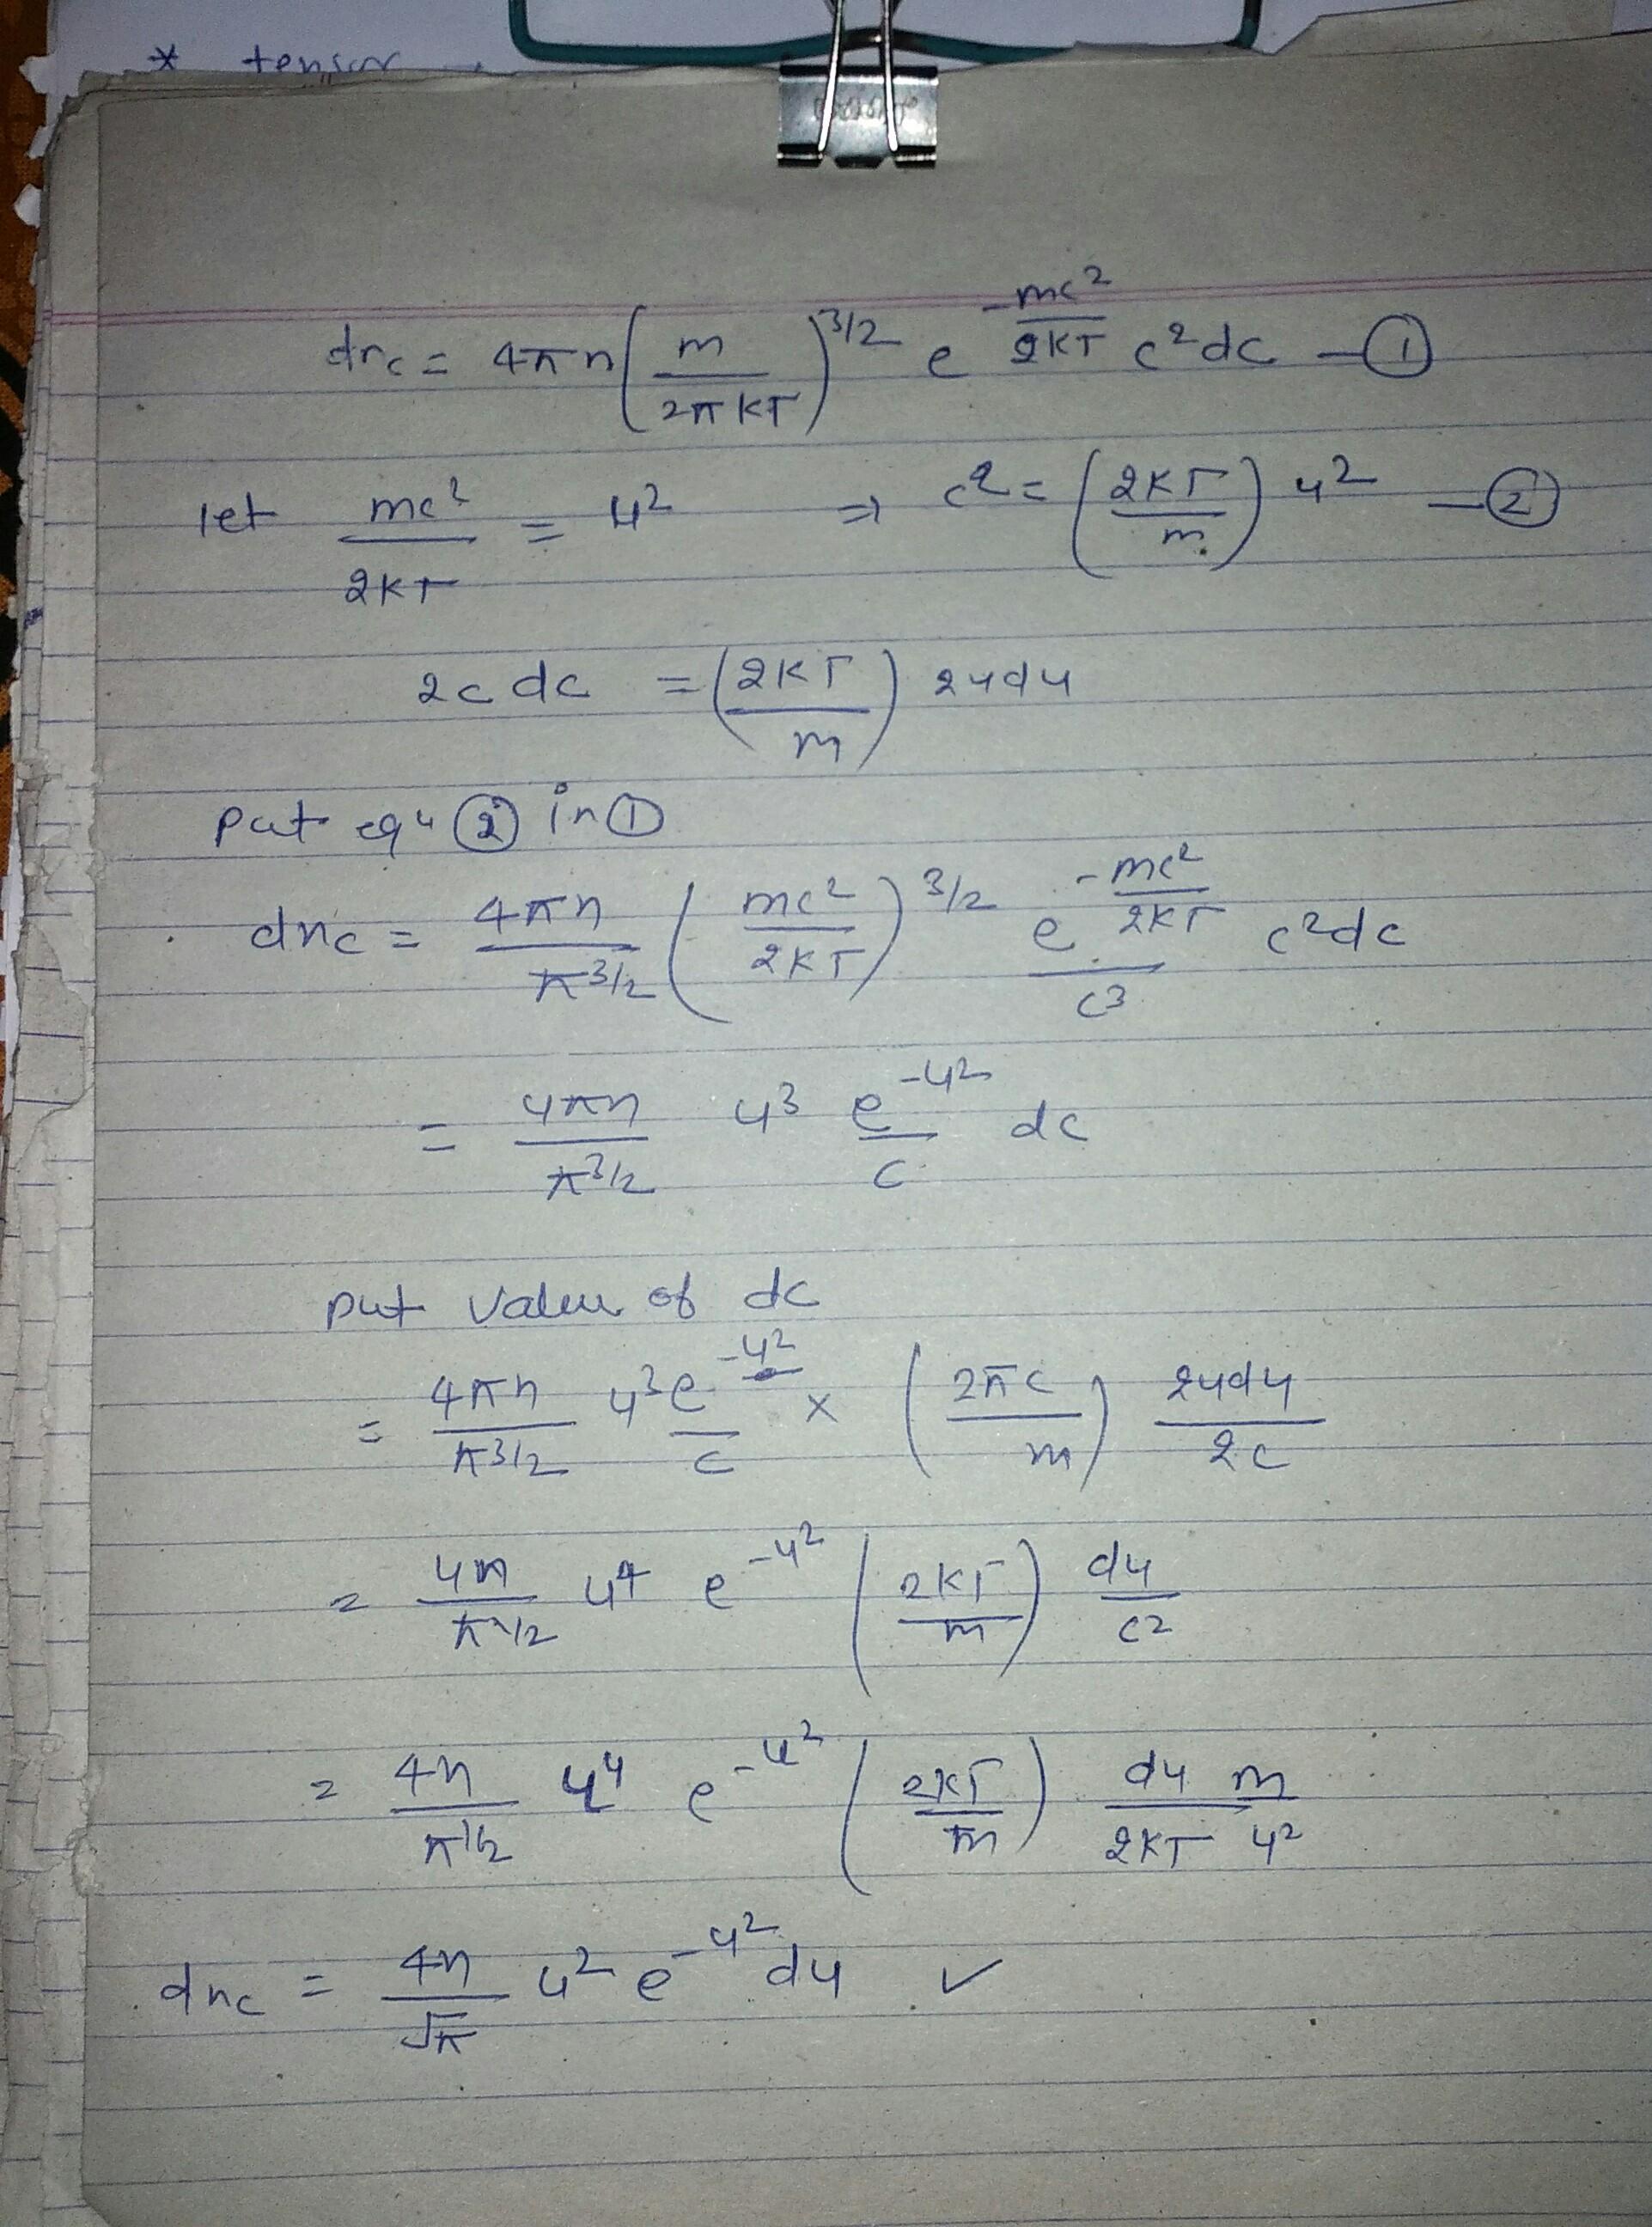 * tensor
dnc = 4πn (m / 2πKT)^3/2 e^(-mc² / 2KT) c²dc — ①
let mc² / 2KT = u² ⇒ c² = (2KT / m) u² — ②
2c dc = (2KT / m) 2udu
put equ ② in ①
dnc = 4πn / π^3/2 (mc² / 2KT)^3/2 e^(-mc² / 2KT) / c³ c²dc
= 4πn / π^3/2 u³ e^-u² / c dc
put value of dc
= 4πn / π^3/2 u³ e^-u² / c × (2πc / m) 2udu / 2c
= 4n / π^1/2 u⁴ e^-u² (2KT / m) du / c²
= 4n / π^1/2 u⁴ e^-u² (2KT / m) du m / 2KT u²
dnc = 4n / √π u² e^-u² du ✓